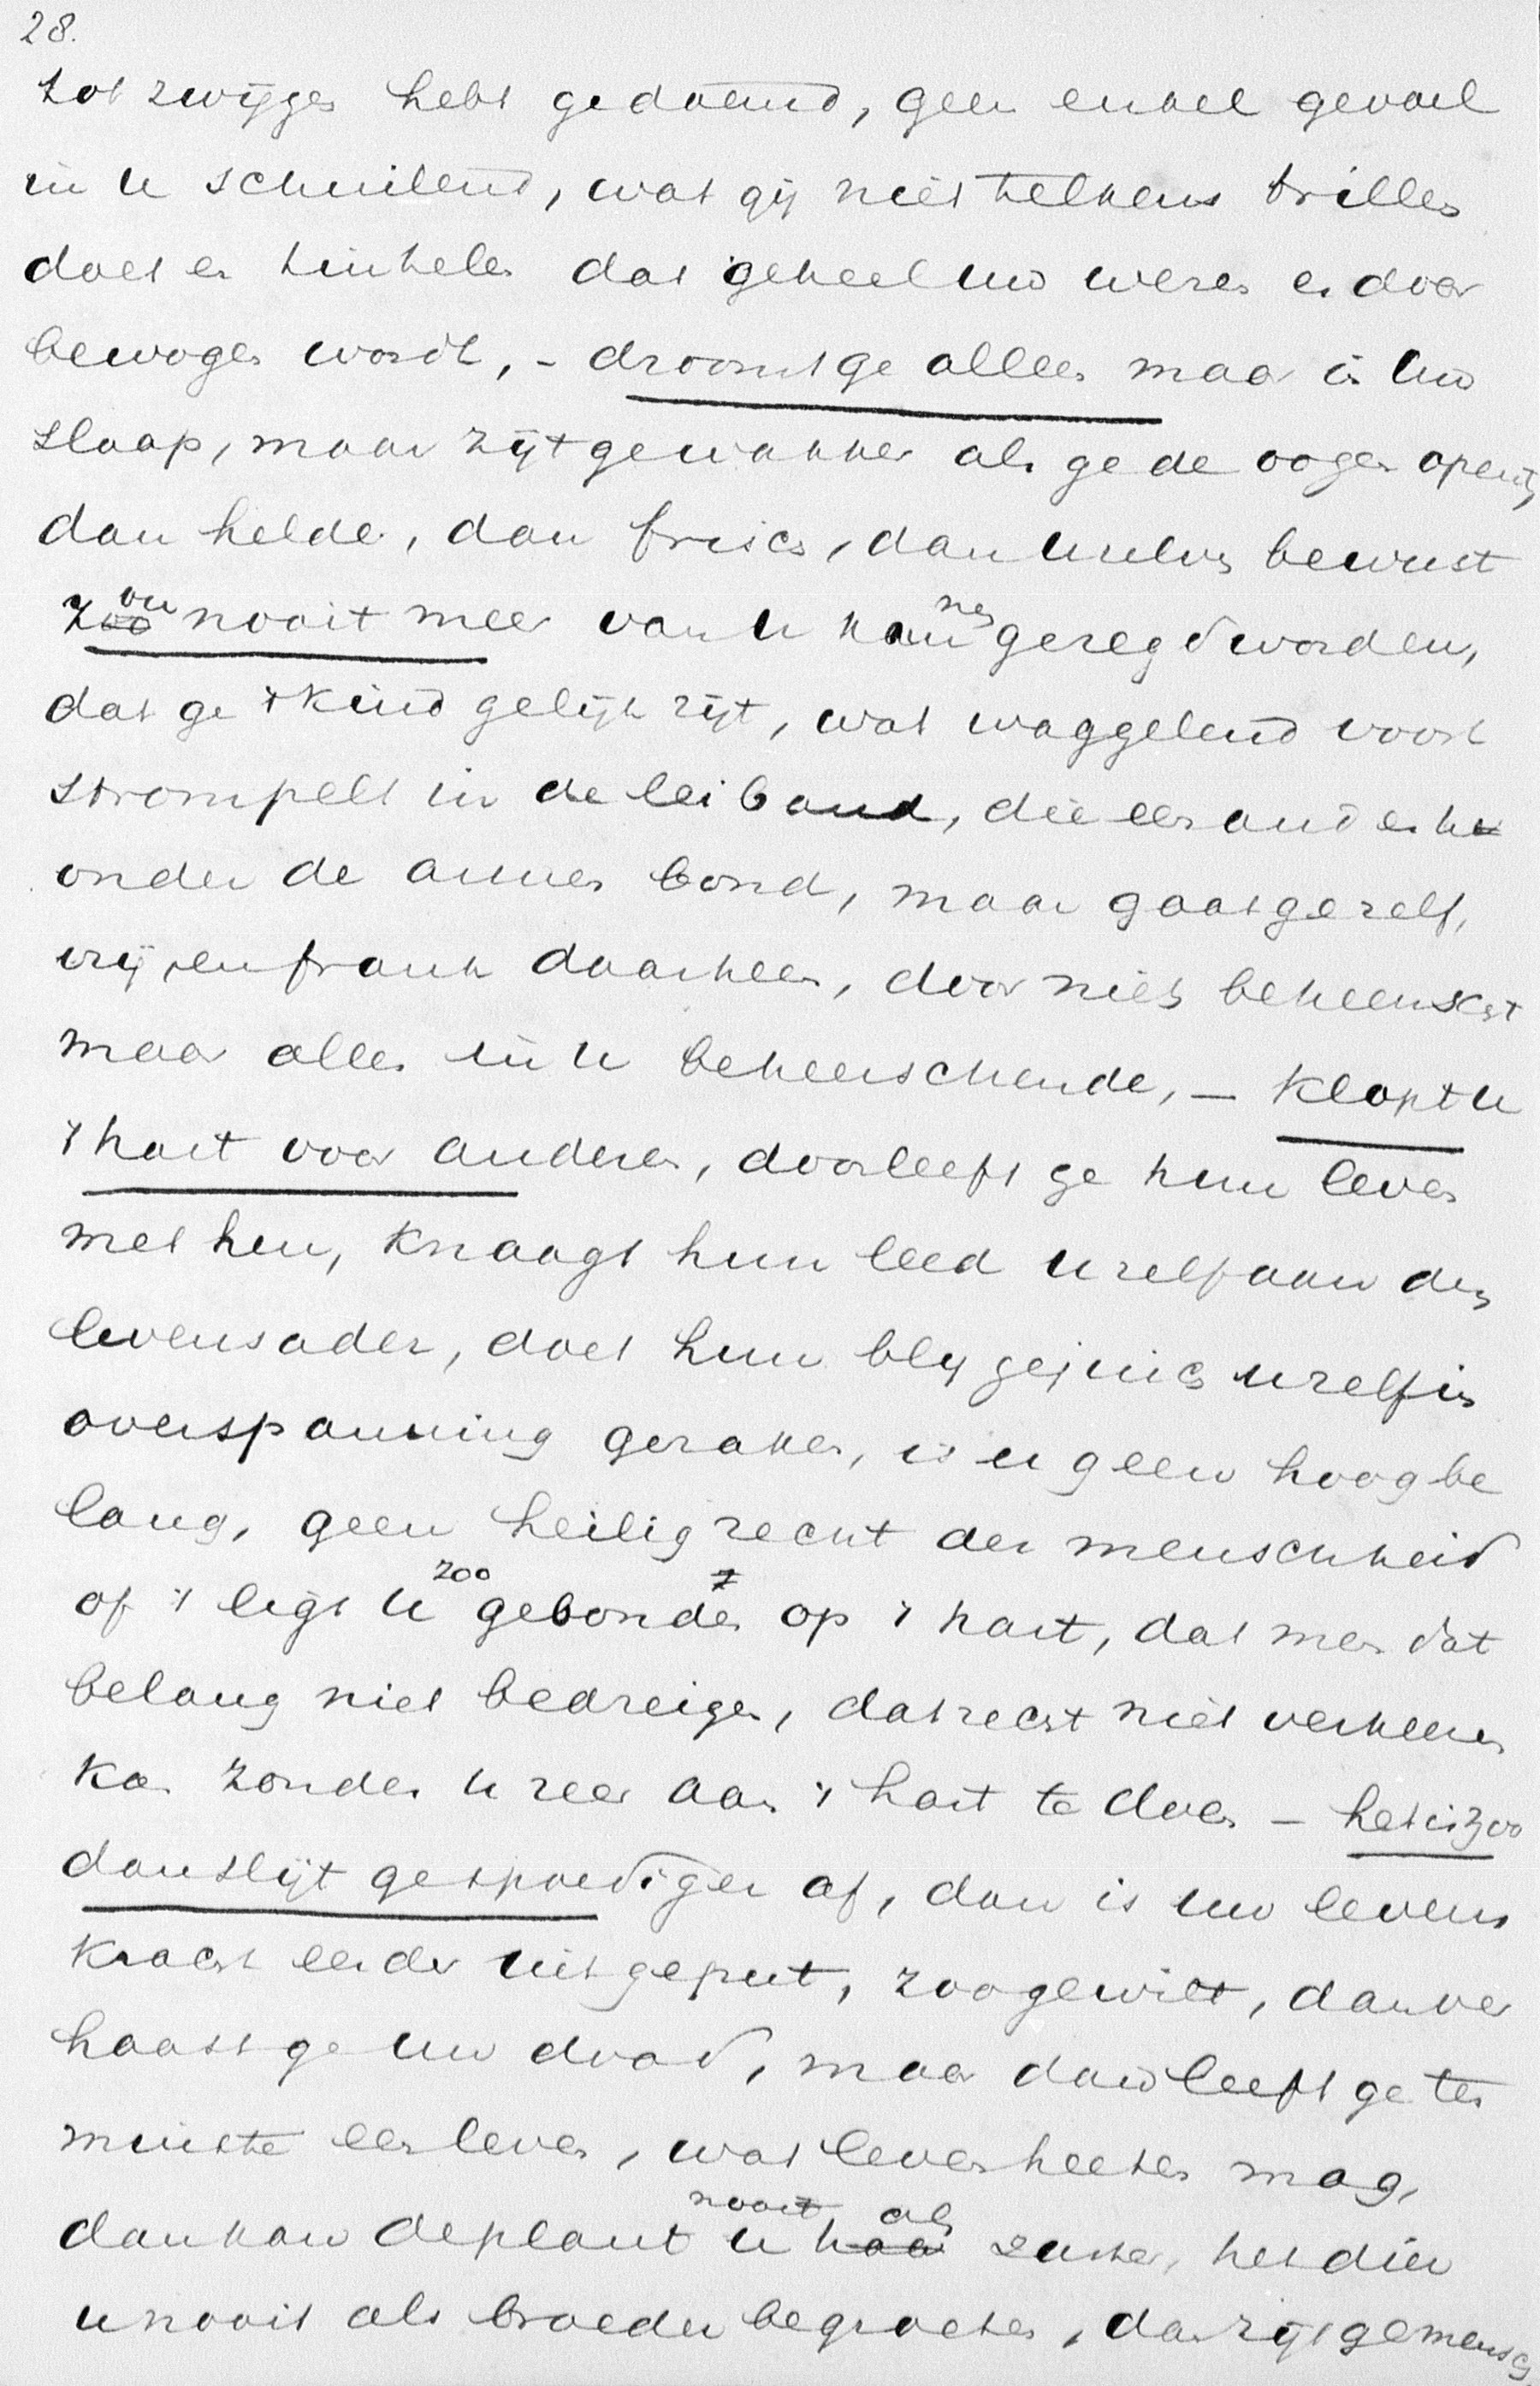 28.
tot zwijgen hebt gedoemd, geen enkel gevoel
in u schuilend, wat gij niet telkens trillen
doet en tintelen dat geheel uw wezen er door
bewogen wordt, - droomt ge alleen maar in uw
slaap, maar zijt ge wakker als ge de oogen opent,
dan helder, dan frisch, dan uzelven bewust
zoo ou nooit meer van u kan nen gezegd worden,
dat ge 't kind gelijk zijt, wat waggelend voort
strompelt in de leiband, die een ander he
onder de armen bond, maar gaat ge zelf,
vrij en frank daarheen, door niets beheerscht
maar alles in u beheerschende, - klopt u
't hart voor anderen, doorleeft ge hun leven
met hen, knaagt hun leed u zelf aan den
levensader, doet hun blij gejuich u zelf in
overspanning geraken, is er geen hoog be
lang, geen heilig recht der menschheid
of 't ligt u zoo gebonden op 't hart, dat men dat
belang niet bedreigen, dat recht niet verkeeren
kan zonder u zeer aan 't hart te doen - het is zoo
dan slijt ge spoediger af, dan is uw levens
kracht eerder uitgeput, zoo ge wilt, dan ver
haast ge uw dood, maar dan leeft ge ten
minste een leven, wat leven heeten mag,
dan kan de plant u nooit als haar zuster, het dier
u nooit als broeder begroeten, dan zijt ge mensch